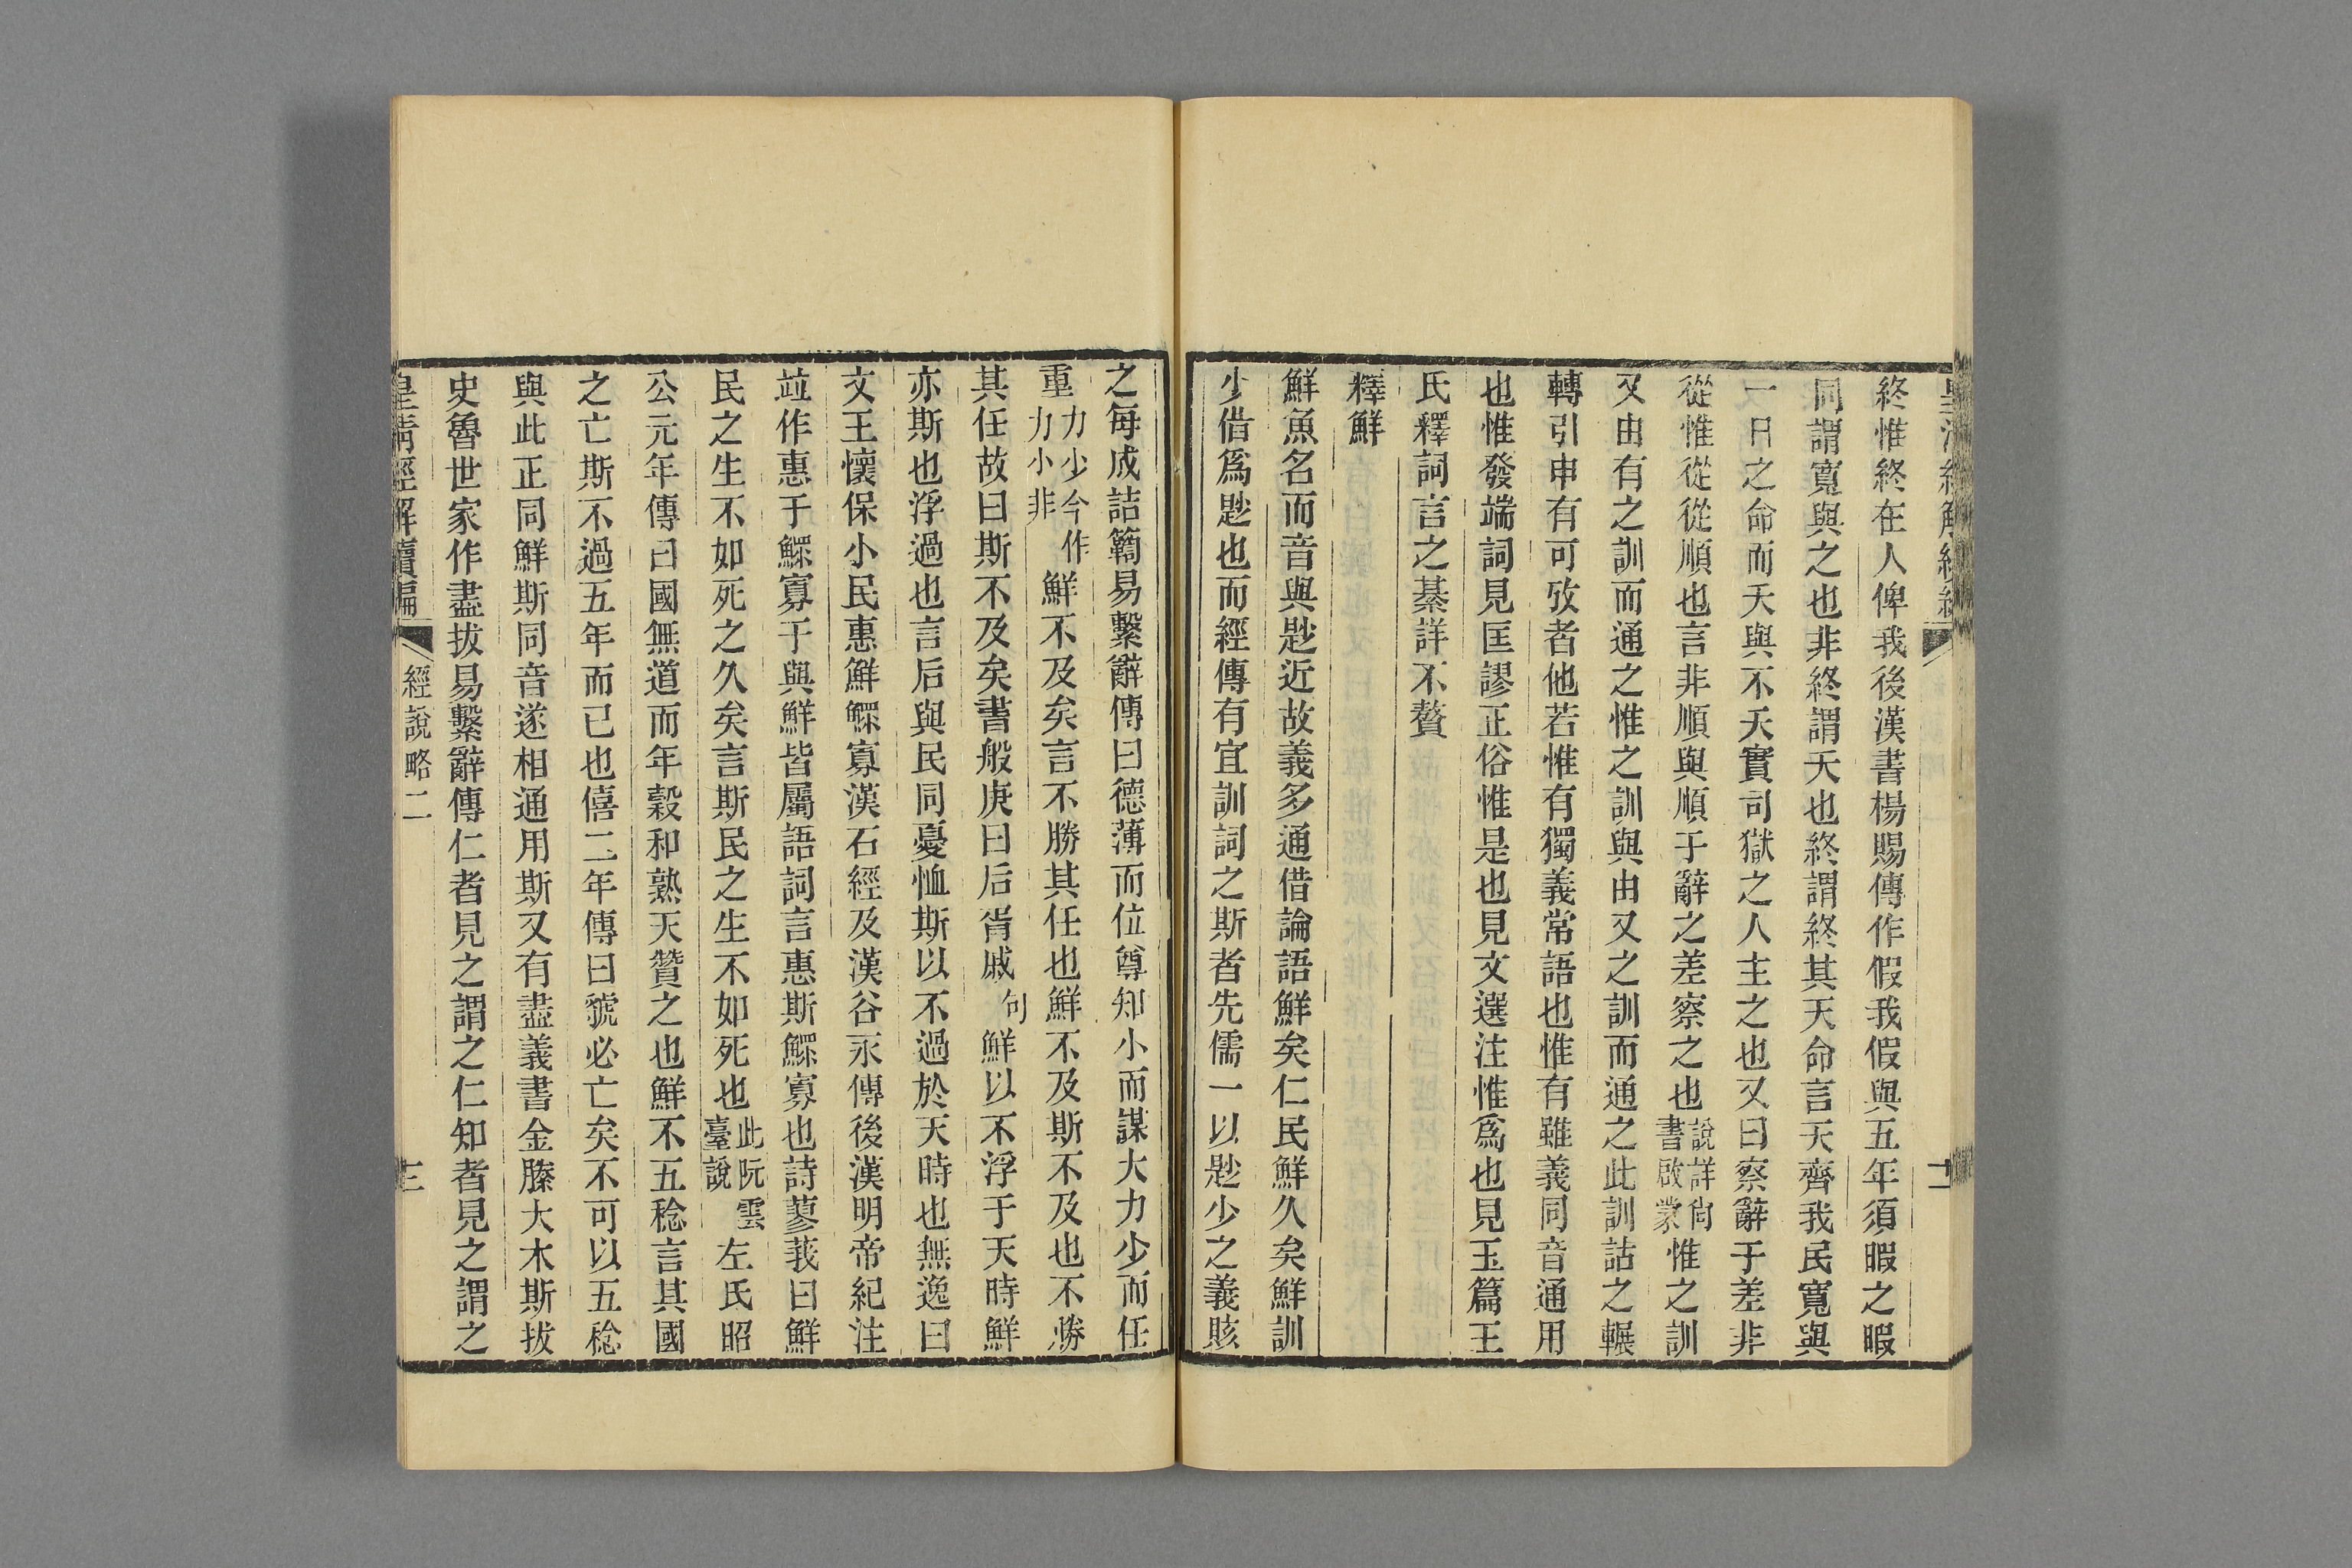 終惟終在人俾我後漢書楊賜傳作假我假與五年須暇之暇
同謂寬與之也非終謂天也終謂終其天命言天齊我民寬與
一日之命而天與不天實司獄之人主之也又曰察辭于差非
從惟從從順也言非順與順于辭之差察之也說詳尙書啟蒙惟之訓
又由有之訓而通之惟之訓與由又之訓而通之此訓詁之輾
轉引申有可攷者他若惟有獨義常語也惟有雖義同音通用
也惟發端詞見匡謬正俗惟是也見文選注惟爲也見玉篇王
氏釋詞言之綦詳不贅
釋鮮
鮮魚名而音與尟近故義多通借論語鮮矣仁民鮮久矣鮮訓
少借爲尟也而經傳有宜訓詞之斯者先儒一以尟少之義賅
之每成詰簕易繫辭傳曰德薄而位尊知小而謀大力少而任
重力少今作力小非鮮不及矣言不勝其任也鮮不及斯不及也不勝
其任故曰斯不及矣書般庚曰后胥慼句鮮以不浮于天時鮮
亦斯也浮過也言后與民同憂恤斯以不過於天時也無逸曰
文王懷保小民惠鮮鰥寡漢石經及漢谷永傳後漢明帝紀注
竝作惠于鰥寡于與鮮皆屬語詞言惠斯鰥寡也詩蓼莪曰鮮
民之生不如死之久矣言斯民之生不如死也此阮雲臺說左氏昭
公元年傳曰國無道而年穀和熟天贊之也鮮不五稔言其國
之亡斯不過五年而已也僖二年傳曰虢必亡矣不可以五稔
與此正同鮮斯同音遂相通用斯又有盡義書金縢大木斯拔
史魯世家作盡拔易繫辭傳仁者見之謂之仁知者見之謂之
皇清經解續編
經說略二
三